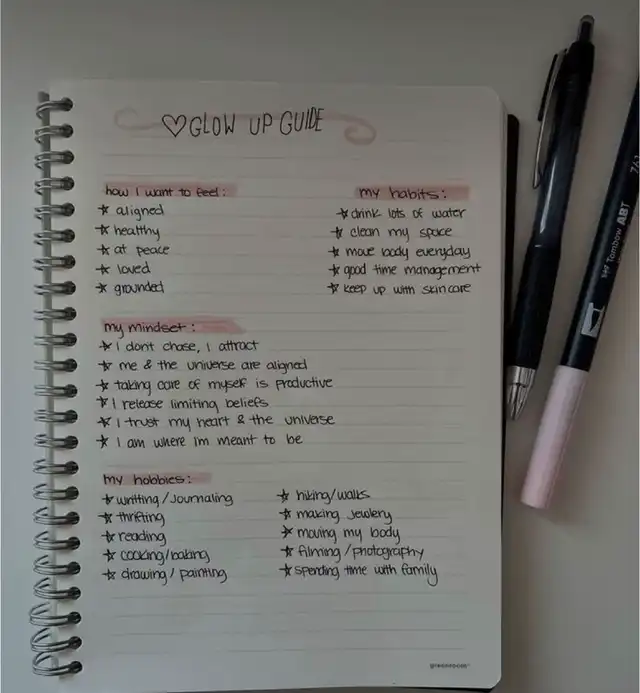 ♡ GLOW UP GUIDE
how I want to feel:
☆ aligned
☆ healthy
☆ at peace
☆ loved
☆ grounded
my habits:
☆ drink lots of water
☆ clean my space
☆ move body everyday
☆ good time management
☆ keep up with skincare
my mindset:
☆ I dont chase, I attract
☆ me & the universe are aligned
☆ taking care of myself is productive
☆ I release limiting beliefs
☆ I trust my heart & the universe
☆ I am where Im meant to be
my hobbies:
☆ writting/Journaling
☆ thrifting
☆ reading
☆ cooking/baking
☆ drawing/painting
☆ hiking/walks
☆ making jewlery
☆ moving my body
☆ filming/photography
☆ spending time with family
greenroom
Tombow ABT
761